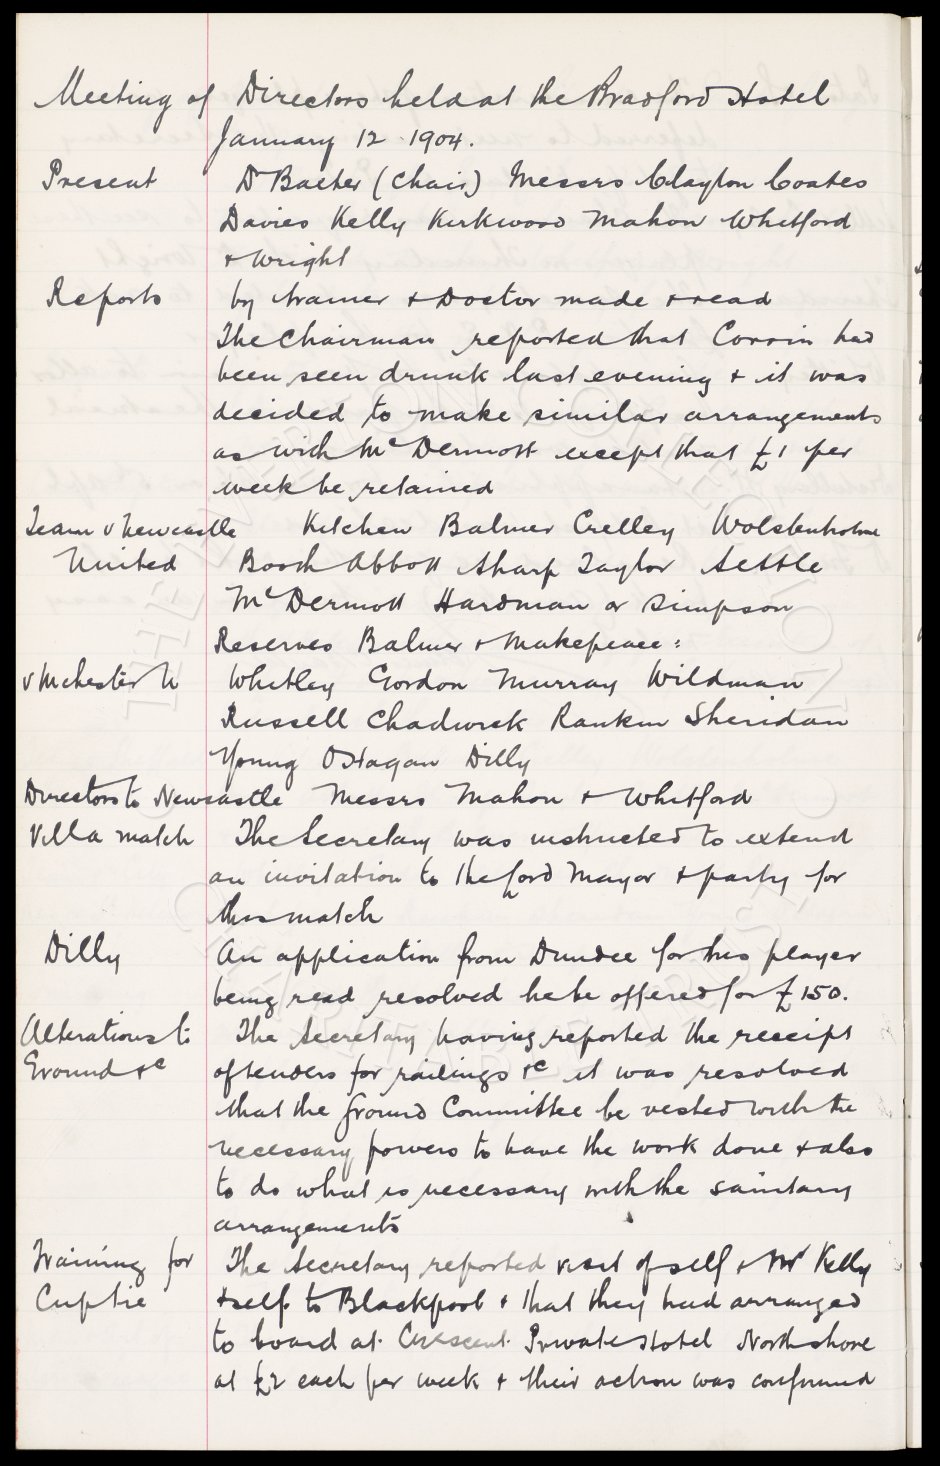 Meeting of Directors held at the Bradford Hotel
January 12 1904.
Present Dr Baxter (Chair) Messrs Clayton Coates
Davies Kelly Kirkwood Mahon Whitford
& Wright
Reports by trainer & Doctor made & read
The Chairman reported that Corrin had
been seen drunk last evening & it was
decided to make similar arrangements
as with McDermott except that £1 per
week be retained
Team v Newcastle Kitchen Balmer Crelley Wolstenholme
United Booth Abbott Sharp Taylor Settle
McDermott Hardman or Simpson
Reserves Balmer & Makepeace:
v Mchester U Whitley Gordon Murray Wildman
Russell Chadwick Rankin Sheridan
Young O'Hagan Dilly
Directors to Newcastle Messrs Mahon & Whitford
Villa match The Secretary was instructed to extend
an invitation to the Lord Mayor & party for
this match
Dilly An application from Dundee for this player
being read resolved he be offered for £150.
Alterations to The Secretary having reported the receipt
Ground &c of tenders for railings &c it was resolved
that the Ground Committee be vested with the
necessary powers to have the work done & also
to do what is necessary with the sanitary
arrangements
Training for The Secretary reported visit of self & Mr Kelly
Cuptie & self to Blackpool & that they had arranged
to board at Crescent Private Hotel North shore
at £2 each per week & their action was confirmed